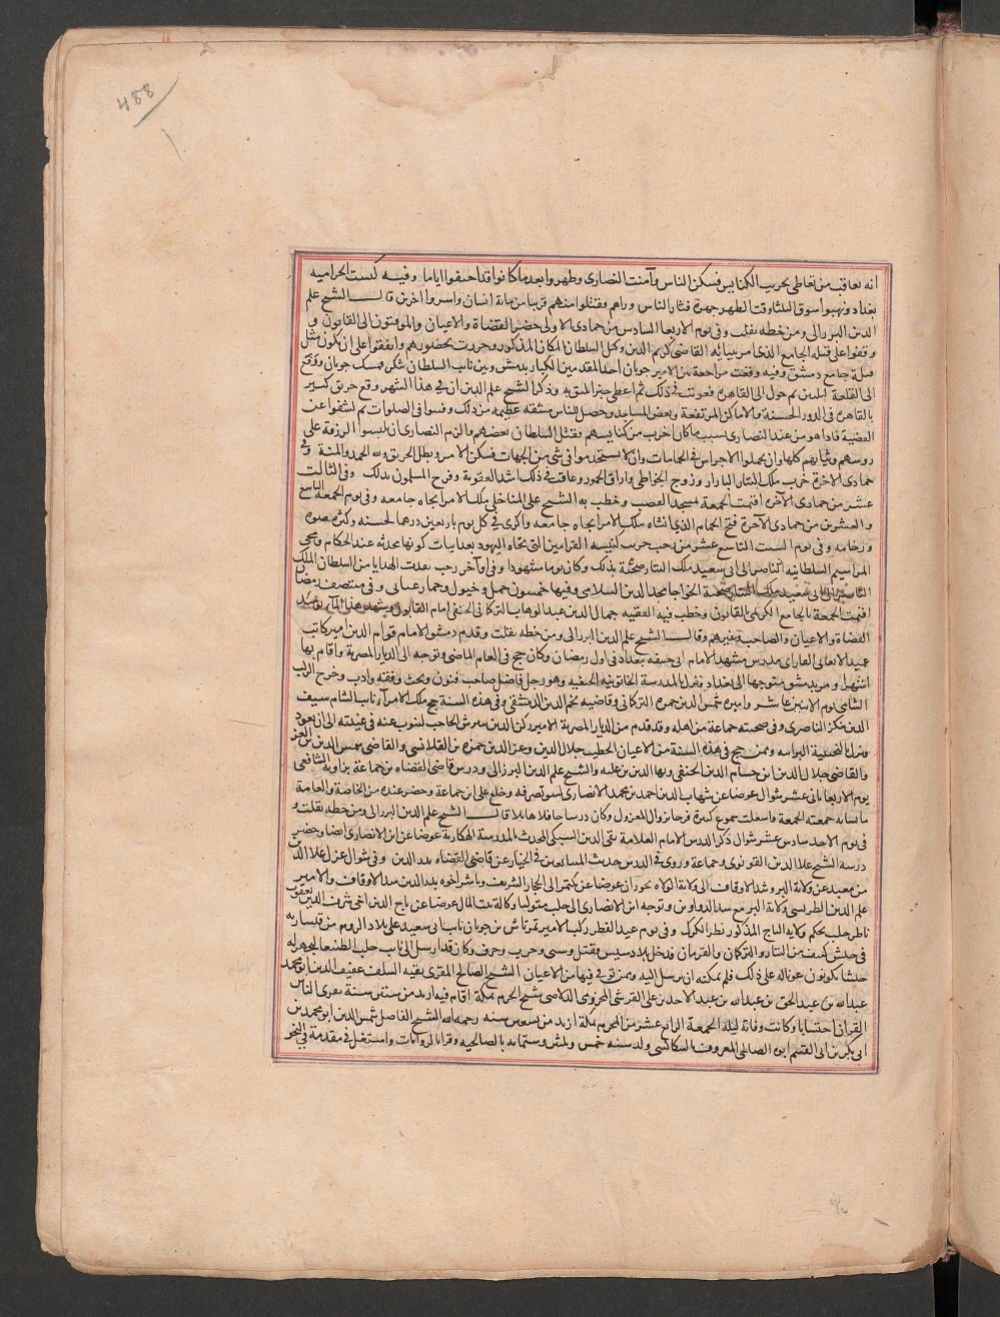 488
انه تعاقب من تعاطى تخريب الكنايس فسكن الناس وآمنت النصارى وظهروا بعد ما كانوا قد اختفوا اياما وفيه كبست الحراميه
بغداد ونهبوا سوق الثلثا وقت الظهر جهرة فثار الناس وراهم وقتلوا منهم قريبا من ماية انسان واسروا اخرين قال الشيخ علم
الدين البرزالى ومن خطه نقلت وفى يوم الاربعا السادس من جمادى الاولى حضر القضاة والاعيان والموقتون الى القابون و
وقفوا على قبلة الجامع الذى امر ببنائه القاضى كريم الدين وكيل السلطان المكان المذكور وحررت بحضورهم واتفقوا على ان تكون مثل
قبلة جامع دمشق وفيه وقعت مراجعة من الامير جوبان احد المقدمين الكبار بدمشق وبين نايب السلطان تنكز فمسك جوبان ورفع
الى القلعة ثم حول الى القاهره فعوتب فى ذلك ثم اعطى خبزا وذكر الشيخ علم الدين ان فى هذا الشهر وقع حريق كبير
بالقاهرة فى الدور الحسنة والاماكن المرتفعة وبعض المساجد وحصل للناس مشقه عظيمه من ذلك وقنتوا فى الصلوات ثم كشفوا عن
القضية فاذا هو من عند النصارى بسبب ما كان اخرب من كنايسهم فقتل السلطان بعضهم والزم النصارى ان يلبسوا الزرقة على
روسهم وثيابهم كلها وان يحملوا الاجراس فى الحمامات وان لا يستخدموا فى شى من الجهات فسكن الامر وبطل الحريق ولله الحمد والمنة وفى
جمادى الاخرة خرب ملك التتار البازار وزوج الخواطى واراق الخمور وعاقب فى ذلك اشد العقوبة وفرح المسلمون بذلك وفى الثالث
عشر من جمادى الآخره اقيمت الجمعة بمسجد القصب وخطب به الشيخ على المناخلى وفى يوم الجمعة التاسع
والعشرين من جمادى الآخرة فتح الحمام الذى انشاه ملك الامرا تجاه جامعه واكرى فى كل يوم باربعين درهما لحسنه وكثرة ضوه
ورخامه وفى يوم السبت التاسع عشر من رجب خربت كنيسه القرايين التى تجاه اليهود بعد اثبات كونها محدثه عند الحكام وتجى
المراسيم السلطانيه الناصر الى ابى سعيد ملك التتار صحبة بذلك وكان يوما مشهودا وفى اواخر رجب نفذت الهدايا من السلطان الملك
الناصر الى ابى سعيد ملك التتار صحبة الخواجا مجد الدين السلامى وفيها خمسون جمل وخيول وحمار عتابى وفى منتصف رمضان
اقيمت الجمعة بالجامع الكريمى بالقابون وخطب فيه الفقيه جمال الدين عبد الوهاب التركمانى الحنفى امام القابون
القضاة والاعيان والصاحب وغيرهم وقال الشيخ علم الدين البرزالى ومن خطه نقلت وقدم دمشق الامام قوام الدين امير كاتب
عميد الاتقانى الفارابى مدرس مشهد الامام ابى حنيفه ببغداد فى اول رمضان وكان حج فى العام الماضى وتوجه الى الديار المصرية واقام بها
اشهرا ومر بدمشق متوجها الى بغداد فنزل المدرسة الخاتونيه الحنفيه وهو رجل فاضل صاحب فنون وبحث وفقه وادب وخرج الركب
الشامى يوم الاثنين عاشر واميره شمس الدين حمزه التركمانى وقاضيه نجم الدين الدمشقى وفى هذه السنة حج ملك الامرآ نايب الشام سيف
الدين تنكز الناصرى وفى صحبته جماعة من اهله وقد قدم من الديار المصرية الامير ركن الدين بيبرس الحاجب لينوب عنه فى غيبته الى ان يعود
فنزل بالنجيبية البرانيه وممن حج فى هذه السنة من الاعيان الخطيب جلال الدين وعز الدين حمزه بن القلانسى والقاضى شمس الدين بن العز
والقاضى جلال الدين ابن حسام الدين الحنفى وبها الدين بن علمه والشيخ علم الدين البرزالى ودرس قاضى القضاه بن جماعة بزاوية الشافعى
يوم الاربعا ثانى عشر شوال عوضا عن شهاب الدين احمد بن محمد الانصارى لسو تصرفه وخلع على ابن جماعة وحضر عنده من الخاصة والعامة
ما يشابه جمعته الجمعة واشعلت شموع كثيرة فرحا بزوال المعزول وكان درسا حافلا هايلا قال الشيخ علم الدين البرزالى ومن خطه نقلت و
فى يوم الاحد سادس عشر شوال ذكر الدرس الامام العلامة تقى الدين السبكى المحدث بالمدرسة الهكارية عوضا عن ابن الانصارى ايضا وحضر
درسه الشيخ علا الدين القونوى وجماعة وروى فى الدرس حديث المتبايعين فى الخيار عن قاضى القضاه بدر الدين وفى شوال عزل علا الدين
من معبد عن ولاية البر وشد الاوقاف الى ولاية الولاه بحوران عوضا عن بكتمر الى الحجاز الشريف وباشر اخوه بدر الدين شد الاوقاف والامير
علم الدين الطرقشى ولاية البر مع شد الدواوين وتوجه ابن الانصارى الى حلب متوليا وكالة بيت المال عوضا عن تاج الدين اخى شرف الدين يعقوب
ناظر حلب بحكم ولاية التاج المذكور نظر الكرك وفى يوم عيد الفطر ركب الامير تمرتاش بن جوبان نايب ابى سعيد على بلاد الروم من قيساريه
فى جيش كثيف من التتار والتركمان والقرمان فدخل بلاد سيس فقتل وسبى وخرب وحرق وكان قد ارسل الى نايب حلب الطنبغا ليجهز له
جيشا يكونون عونا له على ذلك فلم يمكنه ان يرسل اليه وممن توفى فيها من الاعيان الشيخ الصالح المقرى بقيه السلف عفيف الدين ابو محمد
عبد الله بن عبد الحق بن عبد الله بن عبد الاحد بن على القرشى المخزومى الدلاصى شيخ الحرم بمكة اقام فيه ازيد من ستين سنة يقرى الناس
القرآن احتسابا وكانت وفاته ليلة الجمعة الرابع عشر من المحرم بمكة ازيد من تسعين سنه رحمه الله الشيخ الفاضل شمس الدين ابو محمد بن
ابى بكر بن ابى القسم ابوه الصالحى المعروف بالسكاكينى ولد سنه خمس وثلثين وستمايه بالصالحيه وقرا بالروايات واشتغل فى مقدمة فى النحو